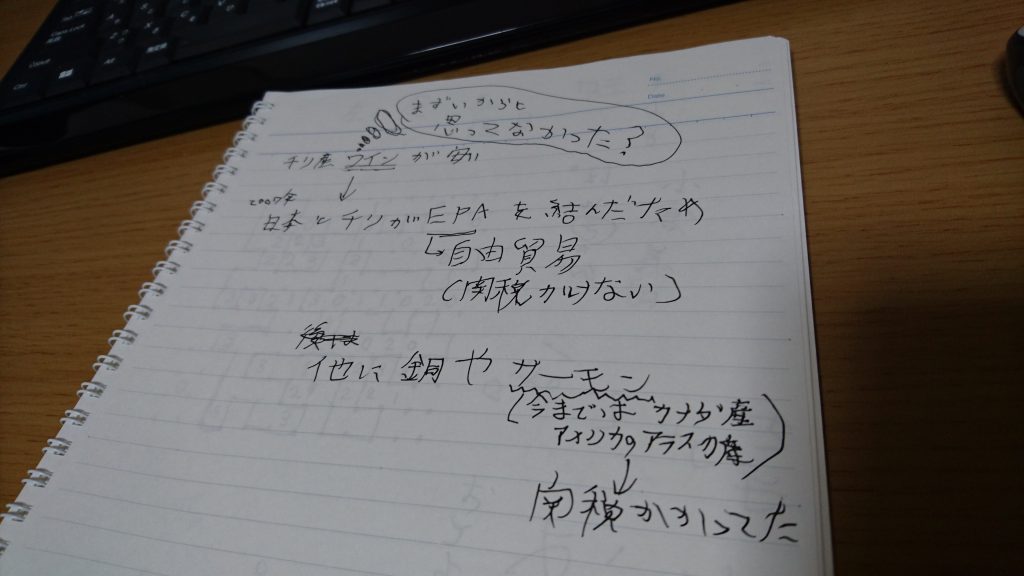 まずいからと
思ってなかった?
チリ産ワインが安い
2007年
日本とチリがEPAを結んだため
自由貿易
(関税かけない)
他に銅やサーモン
(今まではカナダ産
アメリカのアラスカ産)
関税かかってた